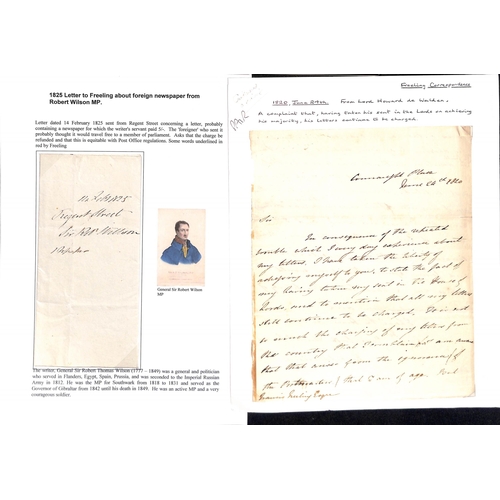 1825 Letter to Freeling about foreign newspaper from
Robert Wilson MP.
Letter dated 14 February 1825 sent from Regent Street concerning a letter, probably
containing a newspaper for which the writer's servant paid 5/-. The 'foreigner' who sent it
probably thought it would travel free to a member of parliament. Asks that the charge
be refunded and that this is equitable with Post Office regulations. Some words underlined in
red by Freeling
14 Feb 1825
Regent Street
Sir Rt Wilson
General Sir Robert Wilson
MP
The writer, General Sir Robert Thomas Wilson (1777 – 1849) was a general and politician
who served in Flanders, Egypt, Spain, Prussia, and was seconded to the Imperial Russian
Army in 1812. He was the MP for Southwark from 1818 to 1831 and served as the
Governor of Gibraltar from 1842 until his death in 1849. He was an active MP and a very
courageous soldier.
Freeling Correspondence
1820, June 24th. From Lord Howard de Walden.
A complaint that, having taken his seat in the Lords on achieving
his majority, his letters continue to be charged.
Connaught Place
June 24th 1820
Sir
In consequence of the repeated
trouble which I every day experience about
my letters, I have taken the liberty of
addressing myself to you, to state the fact of
my having taken my seat in the House of
Lords, and to mention that all my letters
still continue to be charged. It is not
so much the charging of my letters from
the country that I complain of
that arises from the ignorance of
the Postmasters that I am of age. But
Francis Freeling Esqre